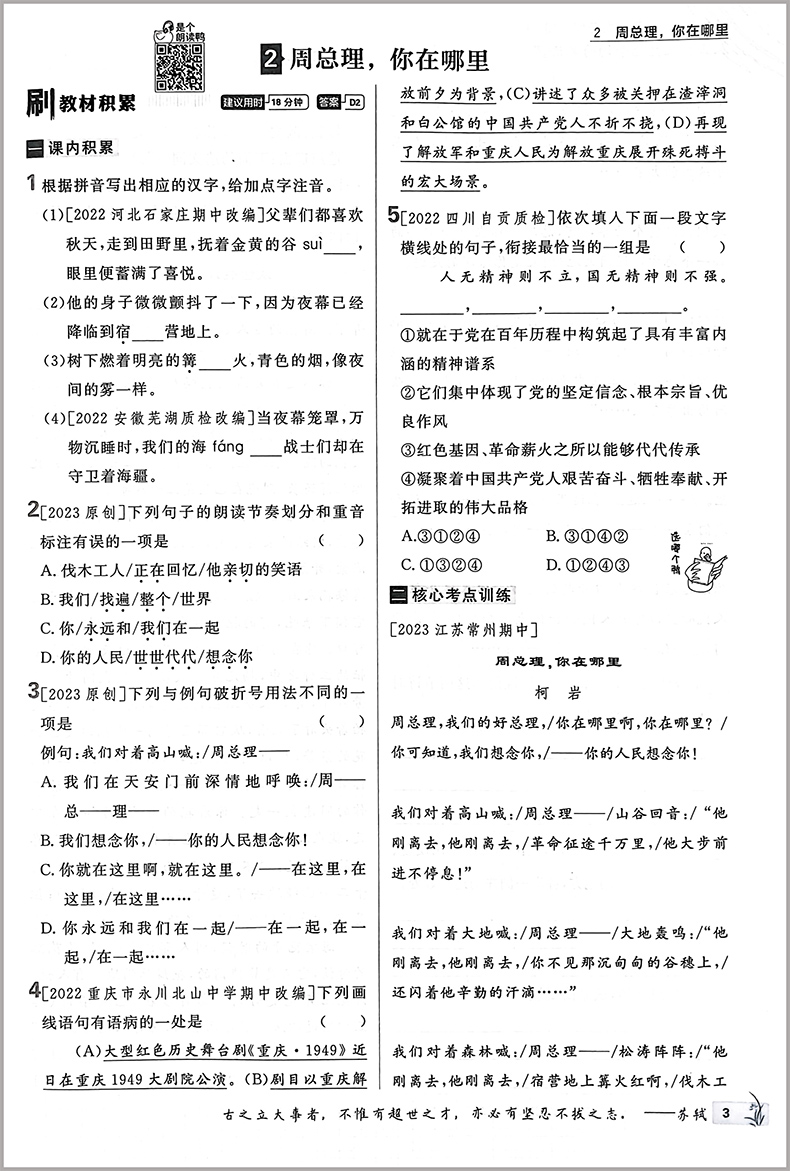 是个
朗读鸭
2 周总理，你在哪里
2 周总理，你在哪里
刷 教材积累
建议用时 18分钟 答案 D2
一 课内积累
1 根据拼音写出相应的汉字，给加点字注音。
(1)[2022河北石家庄期中改编]父辈们都喜欢
秋天，走到田野里，抚着金黄的谷 suì____，
眼里便蓄满了喜悦。
(2)他的身子微微颤抖了一下，因为夜幕已经
降临到宿____营地上。
(3)树下燃着明亮的篝____火，青色的烟，像夜
间的雾一样。
(4)[2022安徽芜湖质检改编]当夜幕笼罩，万
物沉睡时，我们的海 fáng ____战士们却在
守卫着海疆。
2 [2023原创]下列句子的朗读节奏划分和重音
标注有误的一项是 （　　）
A. 伐木工人/正在回忆/他亲切的笑语
B. 我们/找遍/整个/世界
C. 你/永远和/我们在一起
D. 你的人民/世世代代/想念你
3 [2023原创]下列与例句破折号用法不同的一
项是 （　　）
例句：我们对着高山喊：/周总理——
A. 我们在天安门前深情地呼唤：/周——
总——理——
B. 我们想念你，/——你的人民想念你！
C. 你就在这里啊，就在这里。/——在这里，在
这里，/在这里……
D. 你永远和我们在一起/——在一起，在一
起，/在一起……
4 [2022重庆市永川北山中学期中改编]下列画
线语句有语病的一处是 （　　）
(A)大型红色历史舞台剧《重庆·1949》近
日在重庆1949大剧院公演。(B)剧目以重庆解
放前夕为背景，(C)讲述了众多被关押在渣滓洞
和白公馆的中国共产党人不折不挠，(D)再现
了解放军和重庆人民为解放重庆展开殊死搏斗
的宏大场景。
5 [2022四川自贡质检]依次填入下面一段文字
横线处的句子，衔接最恰当的一组是 （　　）
人无精神则不立，国无精神则不强。
________，________，________，________。
①就在于党在百年历程中构筑起了具有丰富内
涵的精神谱系
②它们集中体现了党的坚定信念、根本宗旨、优
良作风
③红色基因、革命薪火之所以能够代代传承
④凝聚着中国共产党人艰苦奋斗、牺牲奉献、开
拓进取的伟大品格
A.③①②④ B. ③①④②
C. ①③②④ D. ①②④③
选哪个鸭
二 核心考点训练
[2023江苏常州期中]
周总理，你在哪里
柯 岩
周总理，我们的好总理，/你在哪里啊，你在哪里？/
你可知道，我们想念你，/——你的人民想念你！
我们对着高山喊：/周总理——/山谷回音：/“他
刚离去，他刚离去，/革命征途千万里，/他大步前
进不停息！”
我们对着大地喊：/周总理——/大地轰鸣：/“他
刚离去，他刚离去，/你不见那沉甸甸的谷穗上，/
还闪着他辛勤的汗滴……”
我们对着森林喊：/周总理——/松涛阵阵：/“他
刚离去，他刚离去，/宿营地上篝火红啊，/伐木工
古之立大事者，不惟有超世之才，亦必有坚忍不拔之志。——苏轼 3